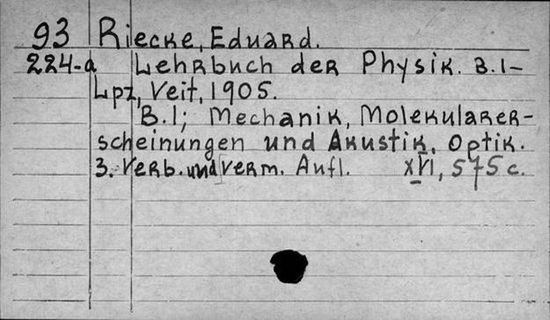 93 Riecke, Eduard.
224-a Lehrbuch der Physik. B.1-
Lpz, Veit, 1905.
B.1; Mechanik, Molekularer-
scheinungen und Akustik, Optik.
3. Verb. und verm. Aufl. XVI, 575 c.